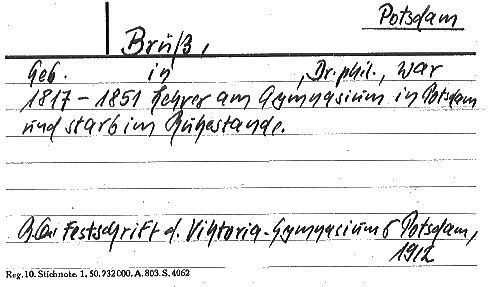 Potsdam
Brüß,
Geb. in , Dr. phil., war
1817 - 1851 Lehrer am Gymnasium in Potsdam
und starb im Ruhestande.
Festschrift d. Viktoria-Gymnasiums Potsdam,
1912
Reg. 10. Stichnote. 1. 50. 732000. A. 803. S. 4062